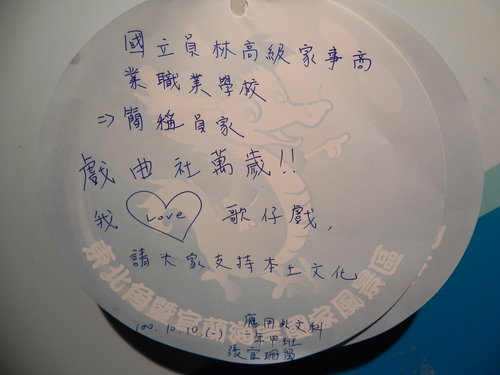 國立員林高級家事商
業職業學校
⇒簡稱員家
戲曲社萬歲!!
我 Love 歌仔戲,
請大家支持本土文化
東北角暨宜蘭海岸國家風景區
100.10.10.(一)
應用外文科
年甲班
張宜珊